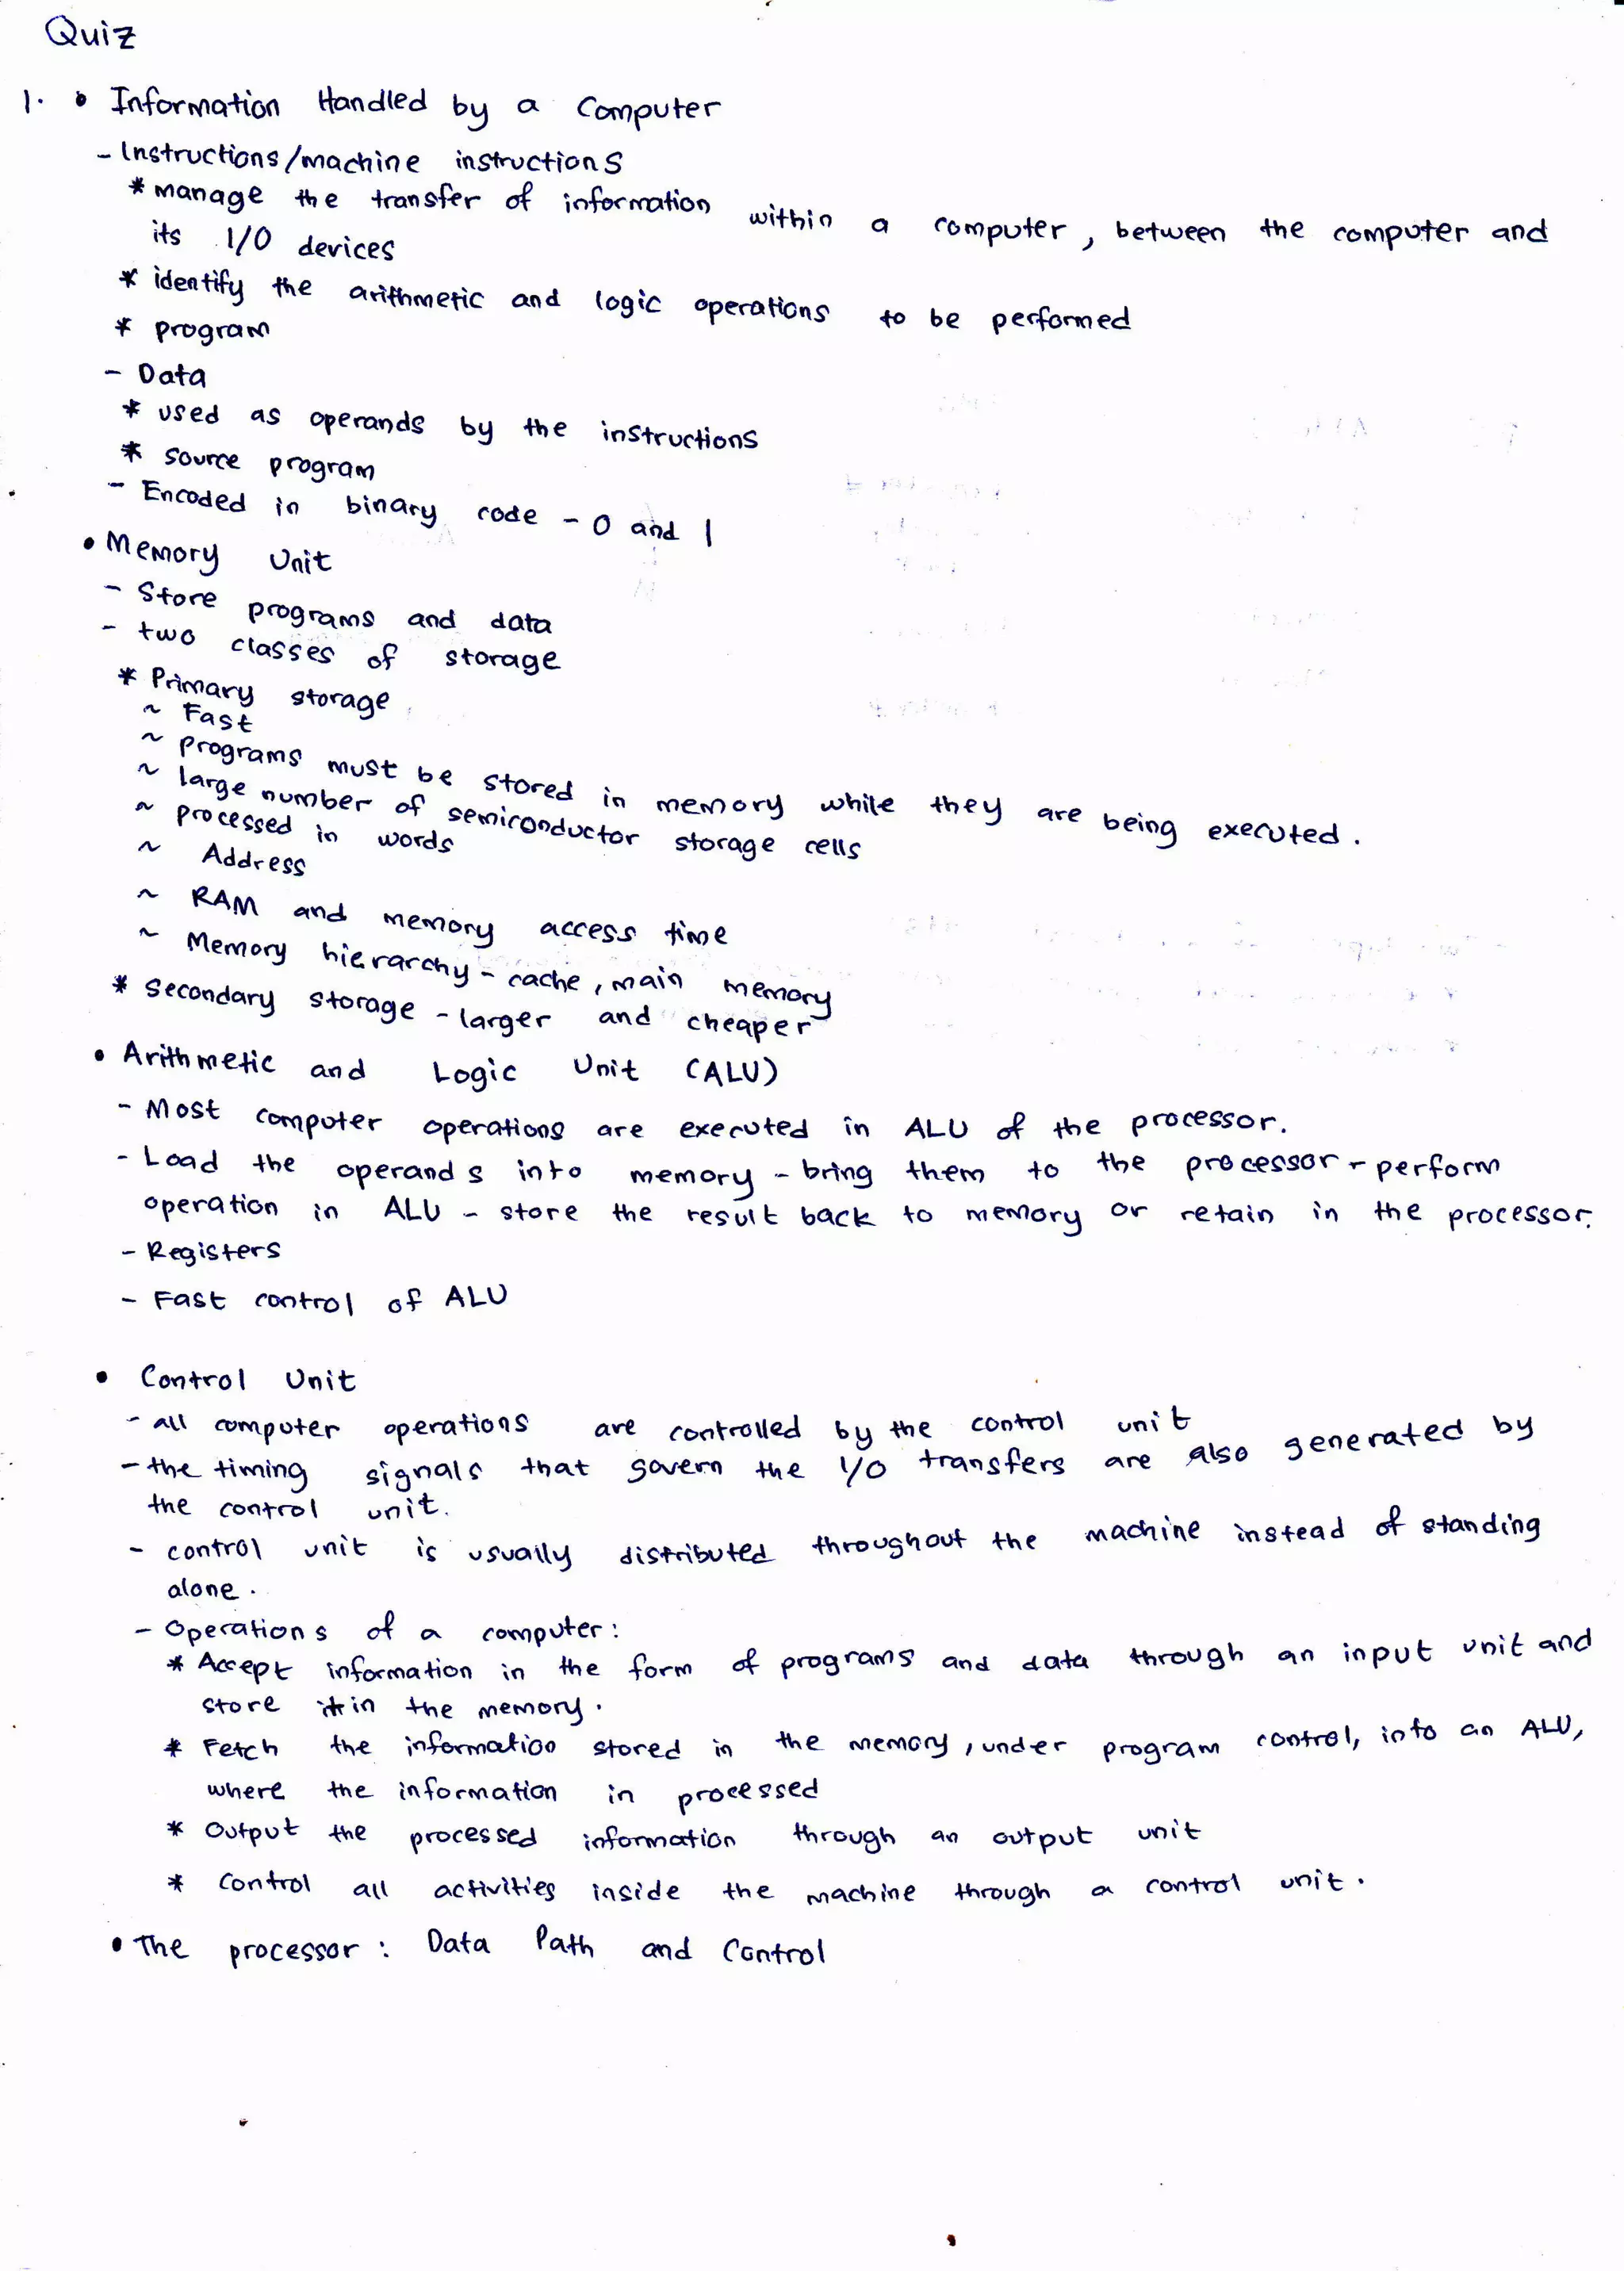 Quiz
1. • Information Handled by a Computer
- Instructions/machine instructions
* manage the transfer of information within a computer, between the computer and
its I/O devices
* identify the arithmetic and logic operations to be performed
* program
- Data
* used as operands by the instructions
* source program
- Encoded in binary code - 0 and 1
• Memory Unit
- Store programs and data
- two classes of storage
* Primary storage
~ Fast
~ programs must be stored in memory while they are being executed.
~ large number of semiconductor storage cells
~ processed in words
~ Address
~ RAM and memory access time
~ Memory hierarchy - cache, main memory
* secondary storage - larger and cheaper
• Arithmetic and Logic Unit (ALU)
- Most computer operations are executed in ALU of the processor.
- Load the operands into memory - bring them to the processor - perform
operation in ALU - store the result back to memory or retain in the processor.
- Registers
- Fast control of ALU
• Control Unit
- all computer operations are controlled by the control unit
- the timing signals that govern the I/O transfers are also generated by
the control unit.
- control unit is usually distributed throughout the machine instead of standing
alone.
- Operations of a computer:
* Accept information in the form of programs and data through an input unit and
store it in the memory.
* Fetch the information stored in the memory, under program control, into an ALU,
where the information in processed
* Output the processed information through an output unit
* Control all activities inside the machine through a control unit.
• The processor: Data Path and Control